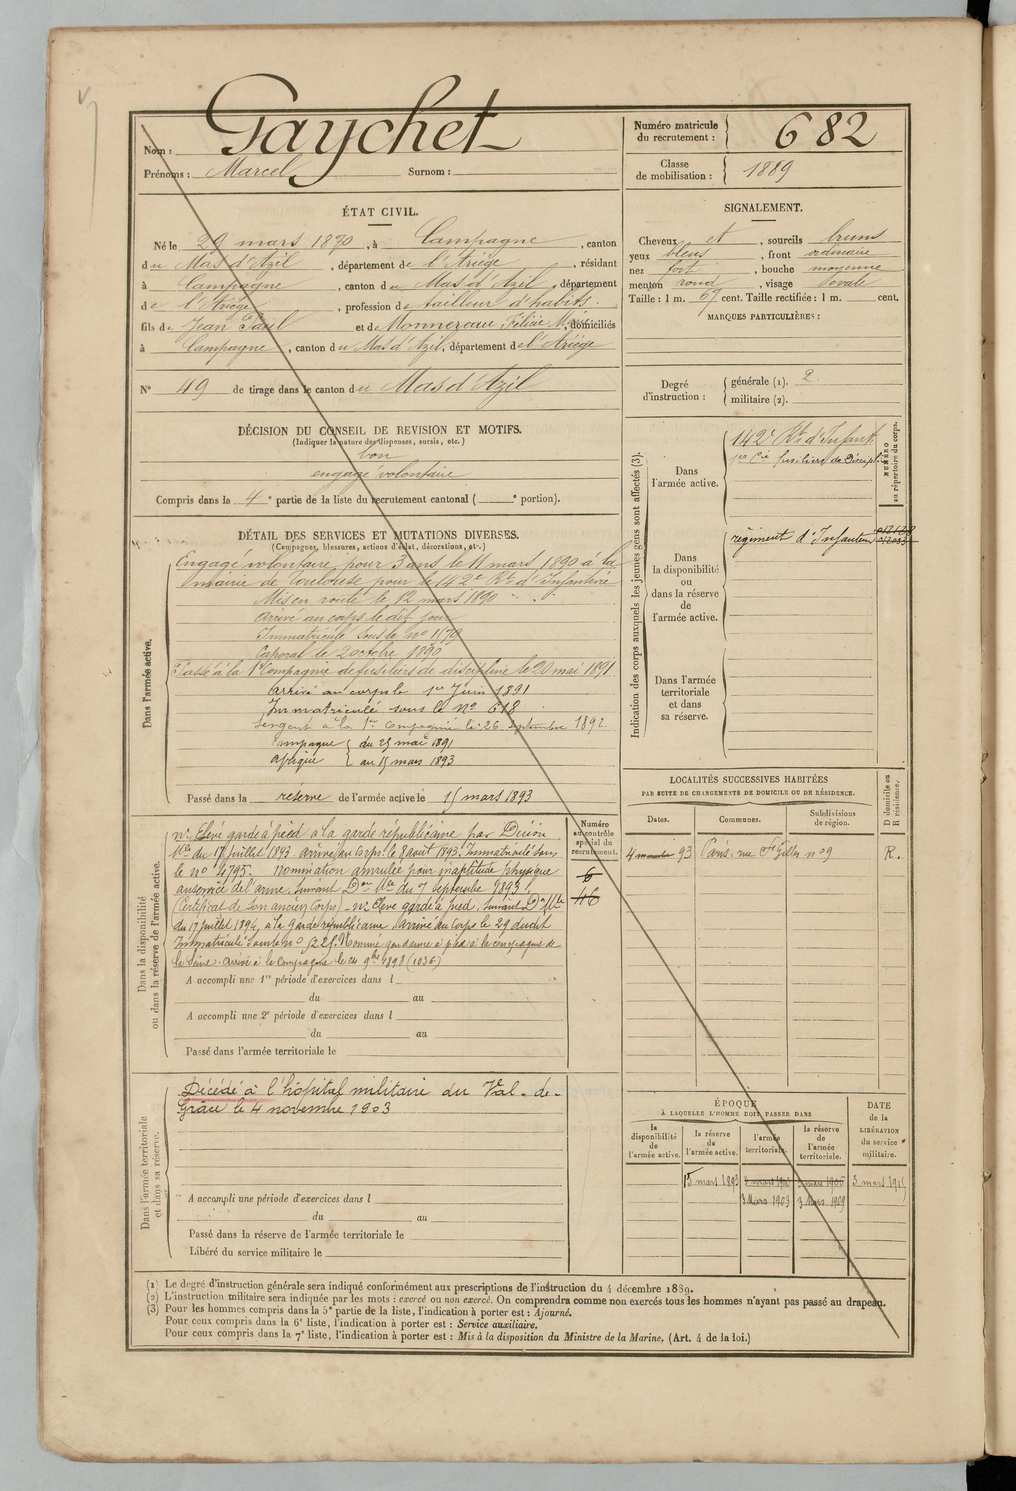 Nom : Gaychet
Prénoms : Marcel Surnom :
Numéro matricule du recrutement : 682
Classe de mobilisation : 1889
ÉTAT CIVIL.
Né le 29 mars 1870, à Campagne, canton
du Mas d'Azil, département de l'Ariège, résidant
à Campagne, canton du Mas d'Azil, département
de l'Ariège, profession de tailleur d'habits.
fils de Jean Paul et de Monnereau Félicie Marie, domiciliés
à Campagne, canton du Mas d'Azil, département de l'Ariège
N° 49 de tirage dans le canton du Mas d'Azil
SIGNALEMENT.
Cheveux et, sourcils bruns
yeux bleus, front ordinaire
nez fort, bouche moyenne
menton rond, visage ovale
Taille : 1 m. 67 cent. Taille rectifiée : 1 m. cent.
MARQUES PARTICULIÈRES :
Degré d'instruction : générale (1). 2.
militaire (2).
DÉCISION DU CONSEIL DE REVISION ET MOTIFS.
(Indiquer la nature des dispenses, sursis, etc.)
bon
engagé volontaire
Compris dans la 4e partie de la liste du recrutement cantonal ( e portion).
DÉTAIL DES SERVICES ET MUTATIONS DIVERSES.
(Campagnes, blessures, actions d'éclat, décorations, etc.)
Dans l'armée active.
Engagé volontaire pour 3 ans le 11 mars 1890 à la
mairie de Toulouse pour le 142e Rt d'Infanterie
Mis en route le 12 mars 1890
arrivé au corps le dit jour
Immatriculé sous le no 1179
Caporal le 2 octobre 1890
Passé à la 1e Compagnie de fusiliers de discipline le 20 mai 1891
arrivé au corps le 1er Juin 1891
Immatriculé sous le No 618
Sergent à la 1re Compagnie le 26 septembre 1892
Campagne du 25 mai 1891
afrique au 15 mars 1893
Passé dans la réserve de l'armée active le 15 mars 1893
Indication des corps auxquels les jeunes gens sont affectés (3).
NUMÉRO au répertoire du corps.
Dans l'armée active.
142e Rt d'Infant.
1er Cie fusiliers de Discipl
Dans la disponibilité ou dans la réserve de l'armée active.
régiment d'Infanterie
Dans l'armée territoriale et dans sa réserve.
Dans la disponibilité ou dans la réserve de l'armée active.
Numéro au contrôle spécial du recrutement.
6
46
Né Elève garde à pied à la garde républicaine par Décision
Mlle du 17 juillet 1893 arrivé au Corps le 8 août 1893. Immatriculé sous
le no 4795. nomination annulée pour inaptitude physique
au service de l'arme. Suivant Don Mlle du 7 septembre 1893.
(Certificat de son ancien Corps) - Né Elève garde à pied, suivant Don Mlle
du 17 juillet 1894, à la garde républicaine arrivé au Corps le 29 dudit
Immatriculé sous le no 5225. Nommé gendarme à pied à la compagnie de
la Seine. arrivé à la Compagnie le 9bre 1898 (1036)
A accompli une 1re période d'exercices dans l
du au
A accompli une 2e période d'exercices dans l
du au
Passé dans l'armée territoriale le
LOCALITÉS SUCCESSIVES HABITÉES
PAR SUITE DE CHANGEMENTS DE DOMICILE OU DE RÉSIDENCE.
Dates. Communes. Subdivisions de région. D domicile ou R résidence.
93 Paris, rue St Gilles no 9 R.
Dans l'armée territoriale et dans sa réserve.
Décédé à l'hôpital militaire du Val-de-
Grâce le 4 novembre 1903
A accompli une période d'exercices dans l
du au
Passé dans la réserve de l'armée territoriale le
Libéré du service militaire le
ÉPOQUE
À LAQUELLE L'HOMME DOIT PASSER DANS
la disponibilité de l'armée active. la réserve de l'armée active. l'armée territoriale. la réserve de l'armée territoriale. DATE de la LIBÉRATION du service militaire.
15 mars 1893 3 mars 1906 3 mars 1915
3 Mars 1903 3 Mars 1909
(1) Le degré d'instruction générale sera indiqué conformément aux prescriptions de l'instruction du 4 décembre 1889.
(2) L'instruction militaire sera indiquée par les mots : exercé ou non exercé. On comprendra comme non exercés tous les hommes n'ayant pas passé au drapeau.
(3) Pour les hommes compris dans la 5e partie de la liste, l'indication à porter est : Ajourné.
Pour ceux compris dans la 6e liste, l'indication à porter est : Service auxiliaire.
Pour ceux compris dans la 7e liste, l'indication à porter est : Mis à la disposition du Ministre de la Marine. (Art. 4 de la loi.)